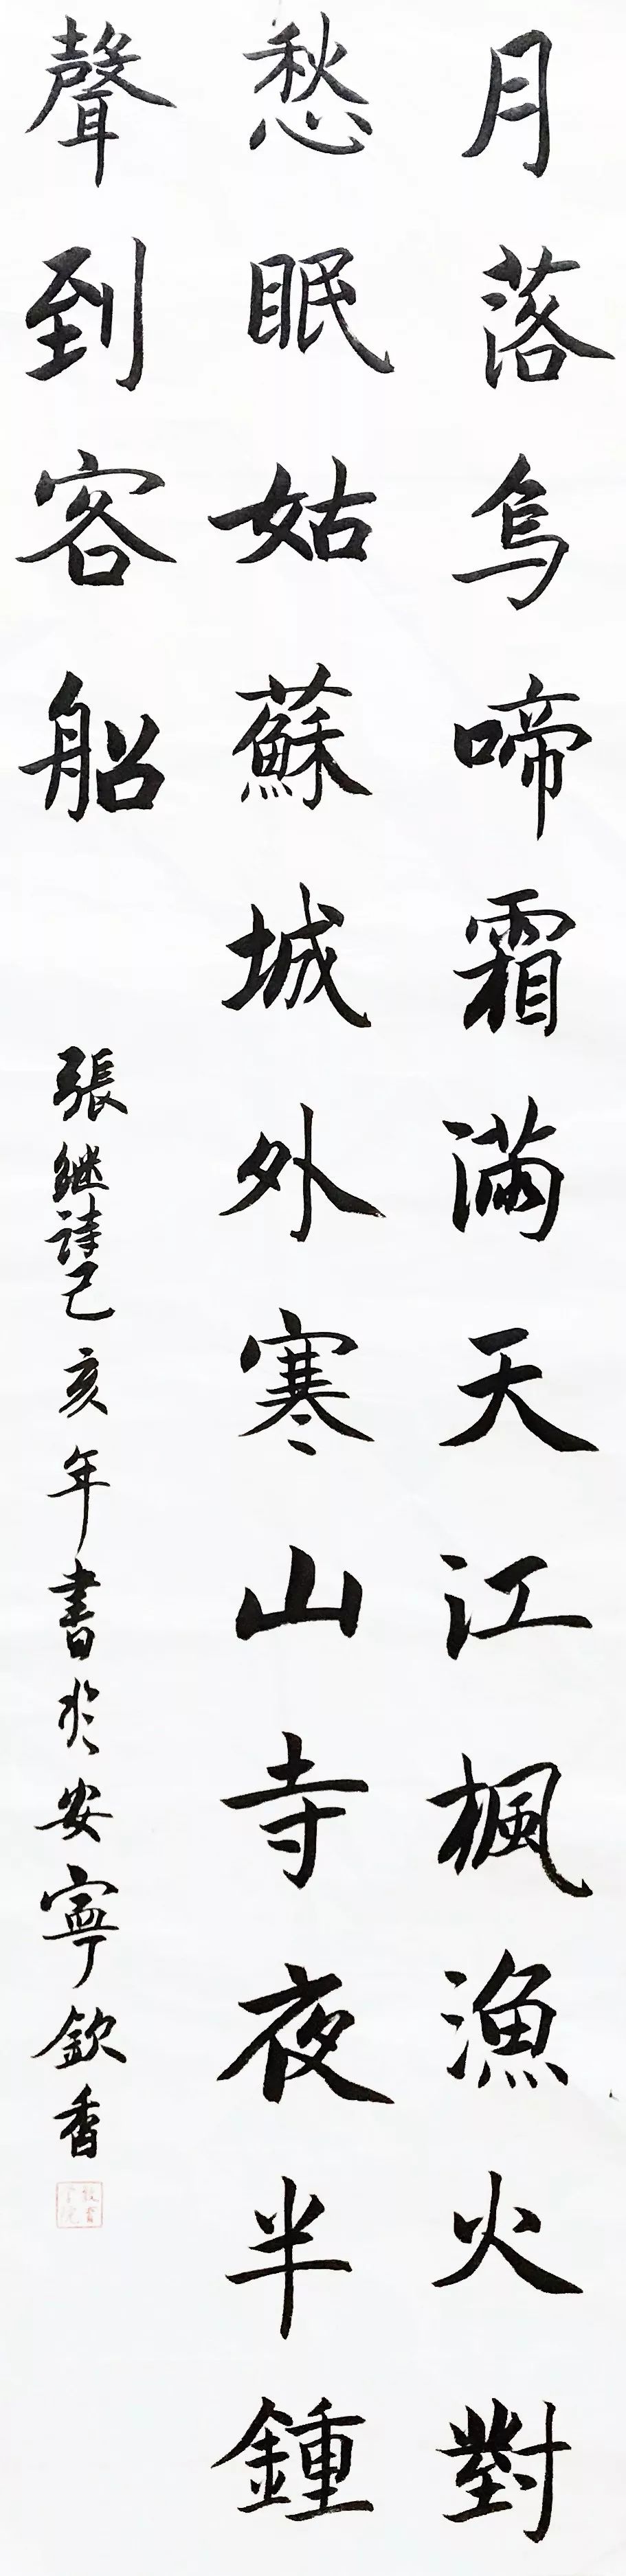 月落烏啼霜滿天江楓漁火對
愁眠姑蘇城外寒山寺夜半鍾
聲到客船
張继詩己亥年書於安寧欽香